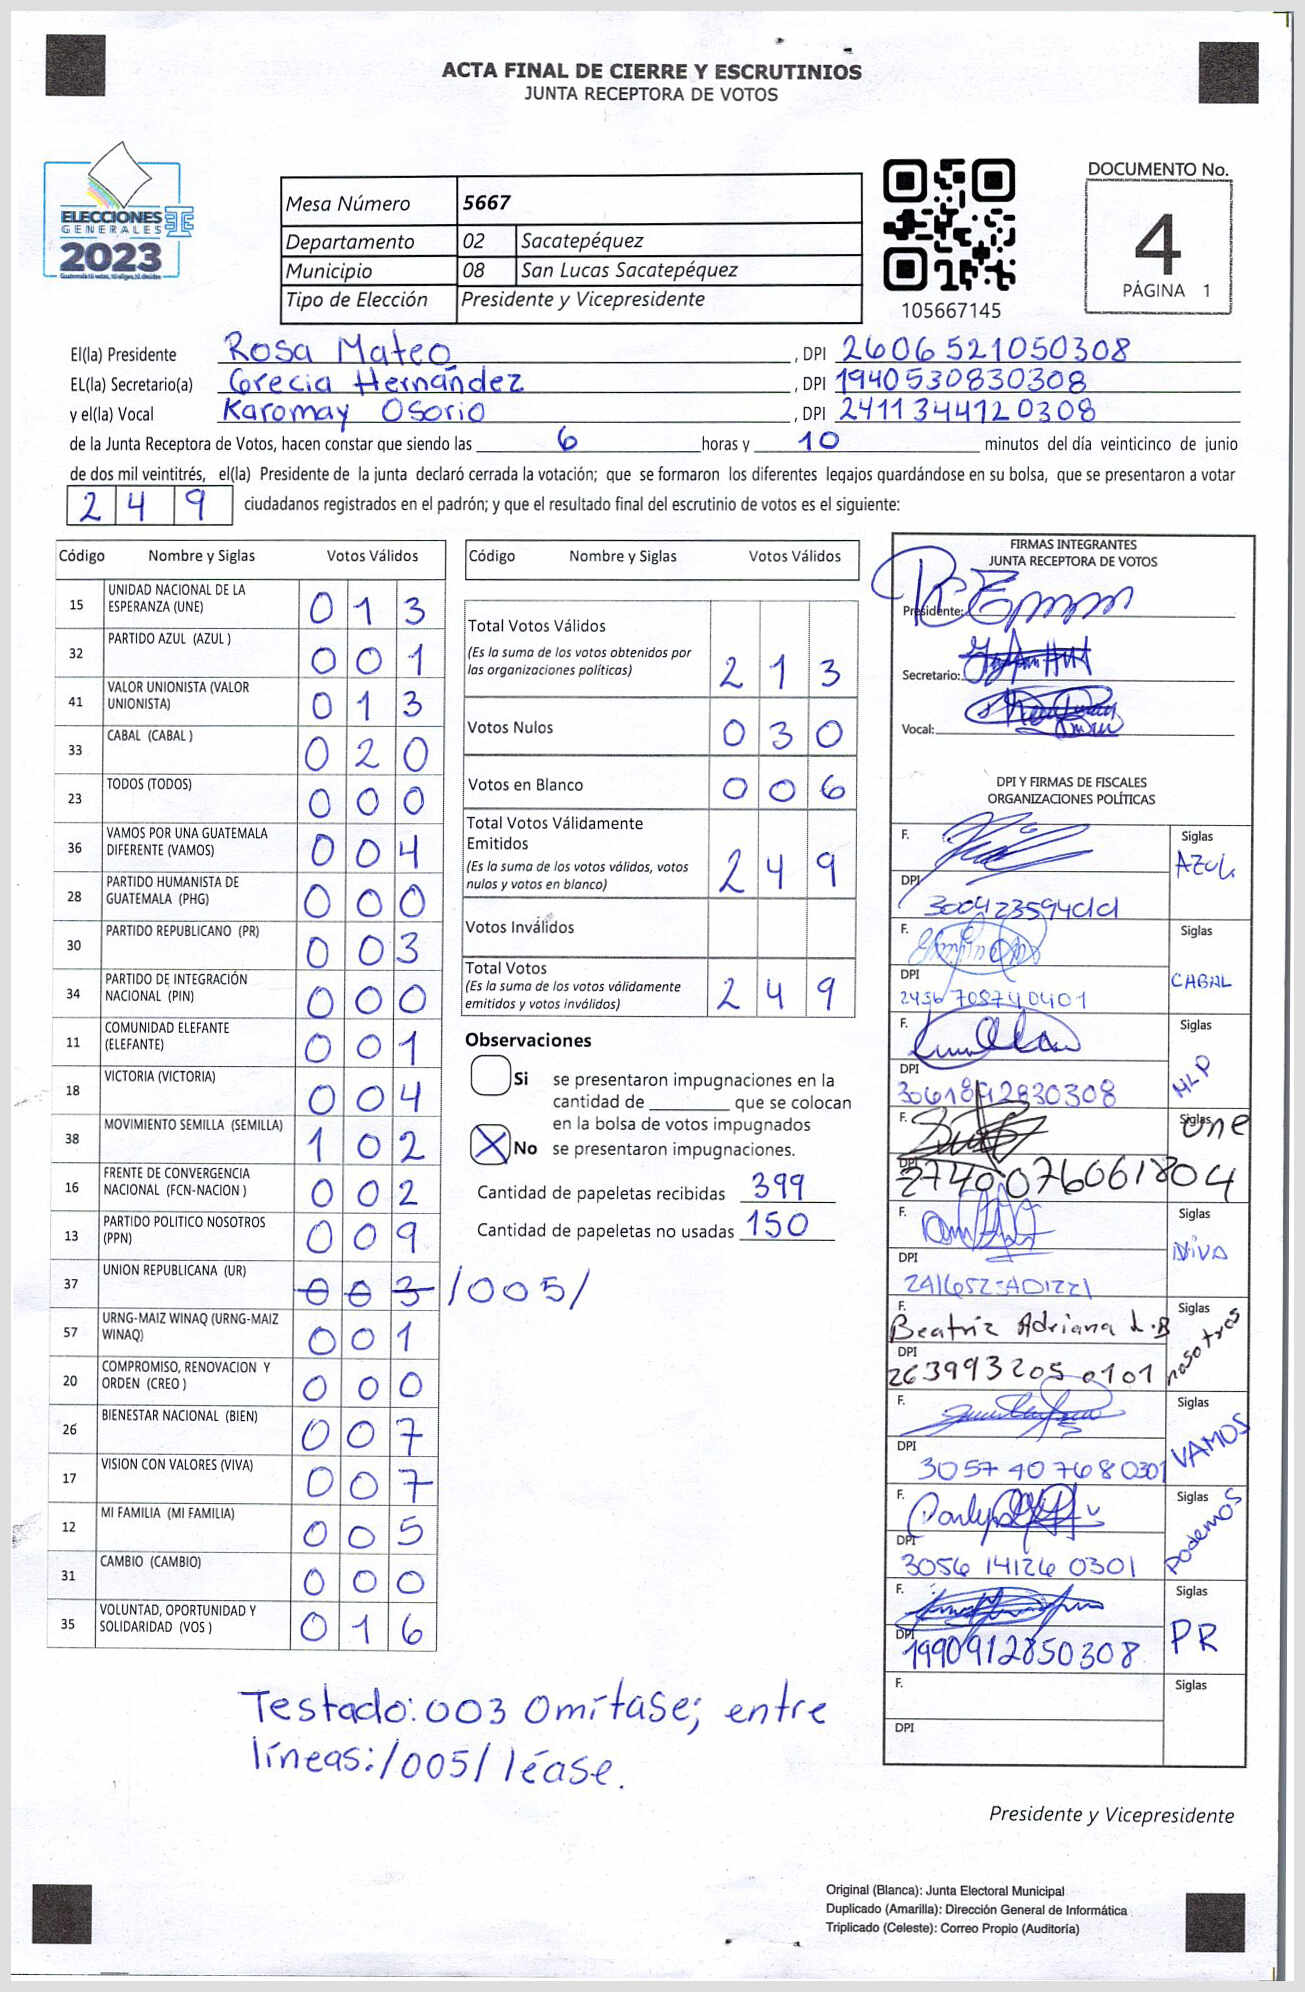 ACTA FINAL DE CIERRE Y ESCRUTINIOS
JUNTA RECEPTORA DE VOTOS
ELECCIONES
GENERALES
2023
Mesa Número 5667
Departamento 02 Sacatepéquez
Municipio 08 San Lucas Sacatepéquez
Tipo de Elección Presidente y Vicepresidente
105667145
DOCUMENTO No.
4
PÁGINA 1
El(la) Presidente Rosa Mateo, DPI 2606521050308
EL(la) Secretario(a) Grecia Hernández, DPI 1940530830308
y el(la) Vocal Karomay Osorio, DPI 2411344120308
de la Junta Receptora de Votos, hacen constar que siendo las 6 horas y 10 minutos del día veinticinco de junio
de dos mil veintitrés, el(la) Presidente de la junta declaró cerrada la votación; que se formaron los diferentes legajos guardándose en su bolsa, que se presentaron a votar
249 ciudadanos registrados en el padrón; y que el resultado final del escrutinio de votos es el siguiente:
Código Nombre y Siglas Votos Válidos
15 UNIDAD NACIONAL DE LA ESPERANZA (UNE) 013
32 PARTIDO AZUL (AZUL ) 001
41 VALOR UNIONISTA (VALOR UNIONISTA) 013
33 CABAL (CABAL ) 020
23 TODOS (TODOS) 000
36 VAMOS POR UNA GUATEMALA DIFERENTE (VAMOS) 004
28 PARTIDO HUMANISTA DE GUATEMALA (PHG) 000
30 PARTIDO REPUBLICANO (PR) 003
34 PARTIDO DE INTEGRACIÓN NACIONAL (PIN) 000
11 COMUNIDAD ELEFANTE (ELEFANTE) 001
18 VICTORIA (VICTORIA) 004
38 MOVIMIENTO SEMILLA (SEMILLA) 102
16 FRENTE DE CONVERGENCIA NACIONAL (FCN-NACION ) 002
13 PARTIDO POLITICO NOSOTROS (PPN) 009
37 UNION REPUBLICANA (UR) 003 /005/
57 URNG-MAIZ WINAQ (URNG-MAIZ WINAQ) 001
20 COMPROMISO, RENOVACION Y ORDEN (CREO ) 000
26 BIENESTAR NACIONAL (BIEN) 007
17 VISION CON VALORES (VIVA) 007
12 MI FAMILIA (MI FAMILIA) 005
31 CAMBIO (CAMBIO) 000
35 VOLUNTAD, OPORTUNIDAD Y SOLIDARIDAD (VOS ) 016
Código Nombre y Siglas Votos Válidos
Total Votos Válidos 213
(Es la suma de los votos obtenidos por
las organizaciones políticas)
Votos Nulos 030
Votos en Blanco 006
Total Votos Válidamente
Emitidos 249
(Es la suma de los votos válidos, votos
nulos y votos en blanco)
Votos Inválidos
Total Votos 249
(Es la suma de los votos válidamente
emitidos y votos inválidos)
Observaciones
Si se presentaron impugnaciones en la
cantidad de ________ que se colocan
en la bolsa de votos impugnados
X No se presentaron impugnaciones.
Cantidad de papeletas recibidas 399
Cantidad de papeletas no usadas 150
FIRMAS INTEGRANTES
JUNTA RECEPTORA DE VOTOS
Presidente:
Secretario:
Vocal:
DPI Y FIRMAS DE FISCALES
ORGANIZACIONES POLÍTICAS
F. Siglas AZUL
DPI
F. Siglas CABAL
DPI 2436708740401
F. Siglas MLP
DPI 3061892830308
F. Siglas une
DPI 27400076061804
F. Siglas
DPI
F. Beatriz Adriana L.B Siglas nosotros
DPI 263993205 0101
F. Siglas VAMOS
DPI 3057 40768 0301
F. Siglas Podemos
DPI 3056 14126 0301
F. Siglas PR
DPI 1990912850308
F. Siglas
DPI
Testado: 003 Omítase; entre
líneas: /005/ léase.
Presidente y Vicepresidente
Original (Blanca): Junta Electoral Municipal
Duplicado (Amarilla): Dirección General de Informática
Triplicado (Celeste): Correo Propio (Auditoría)